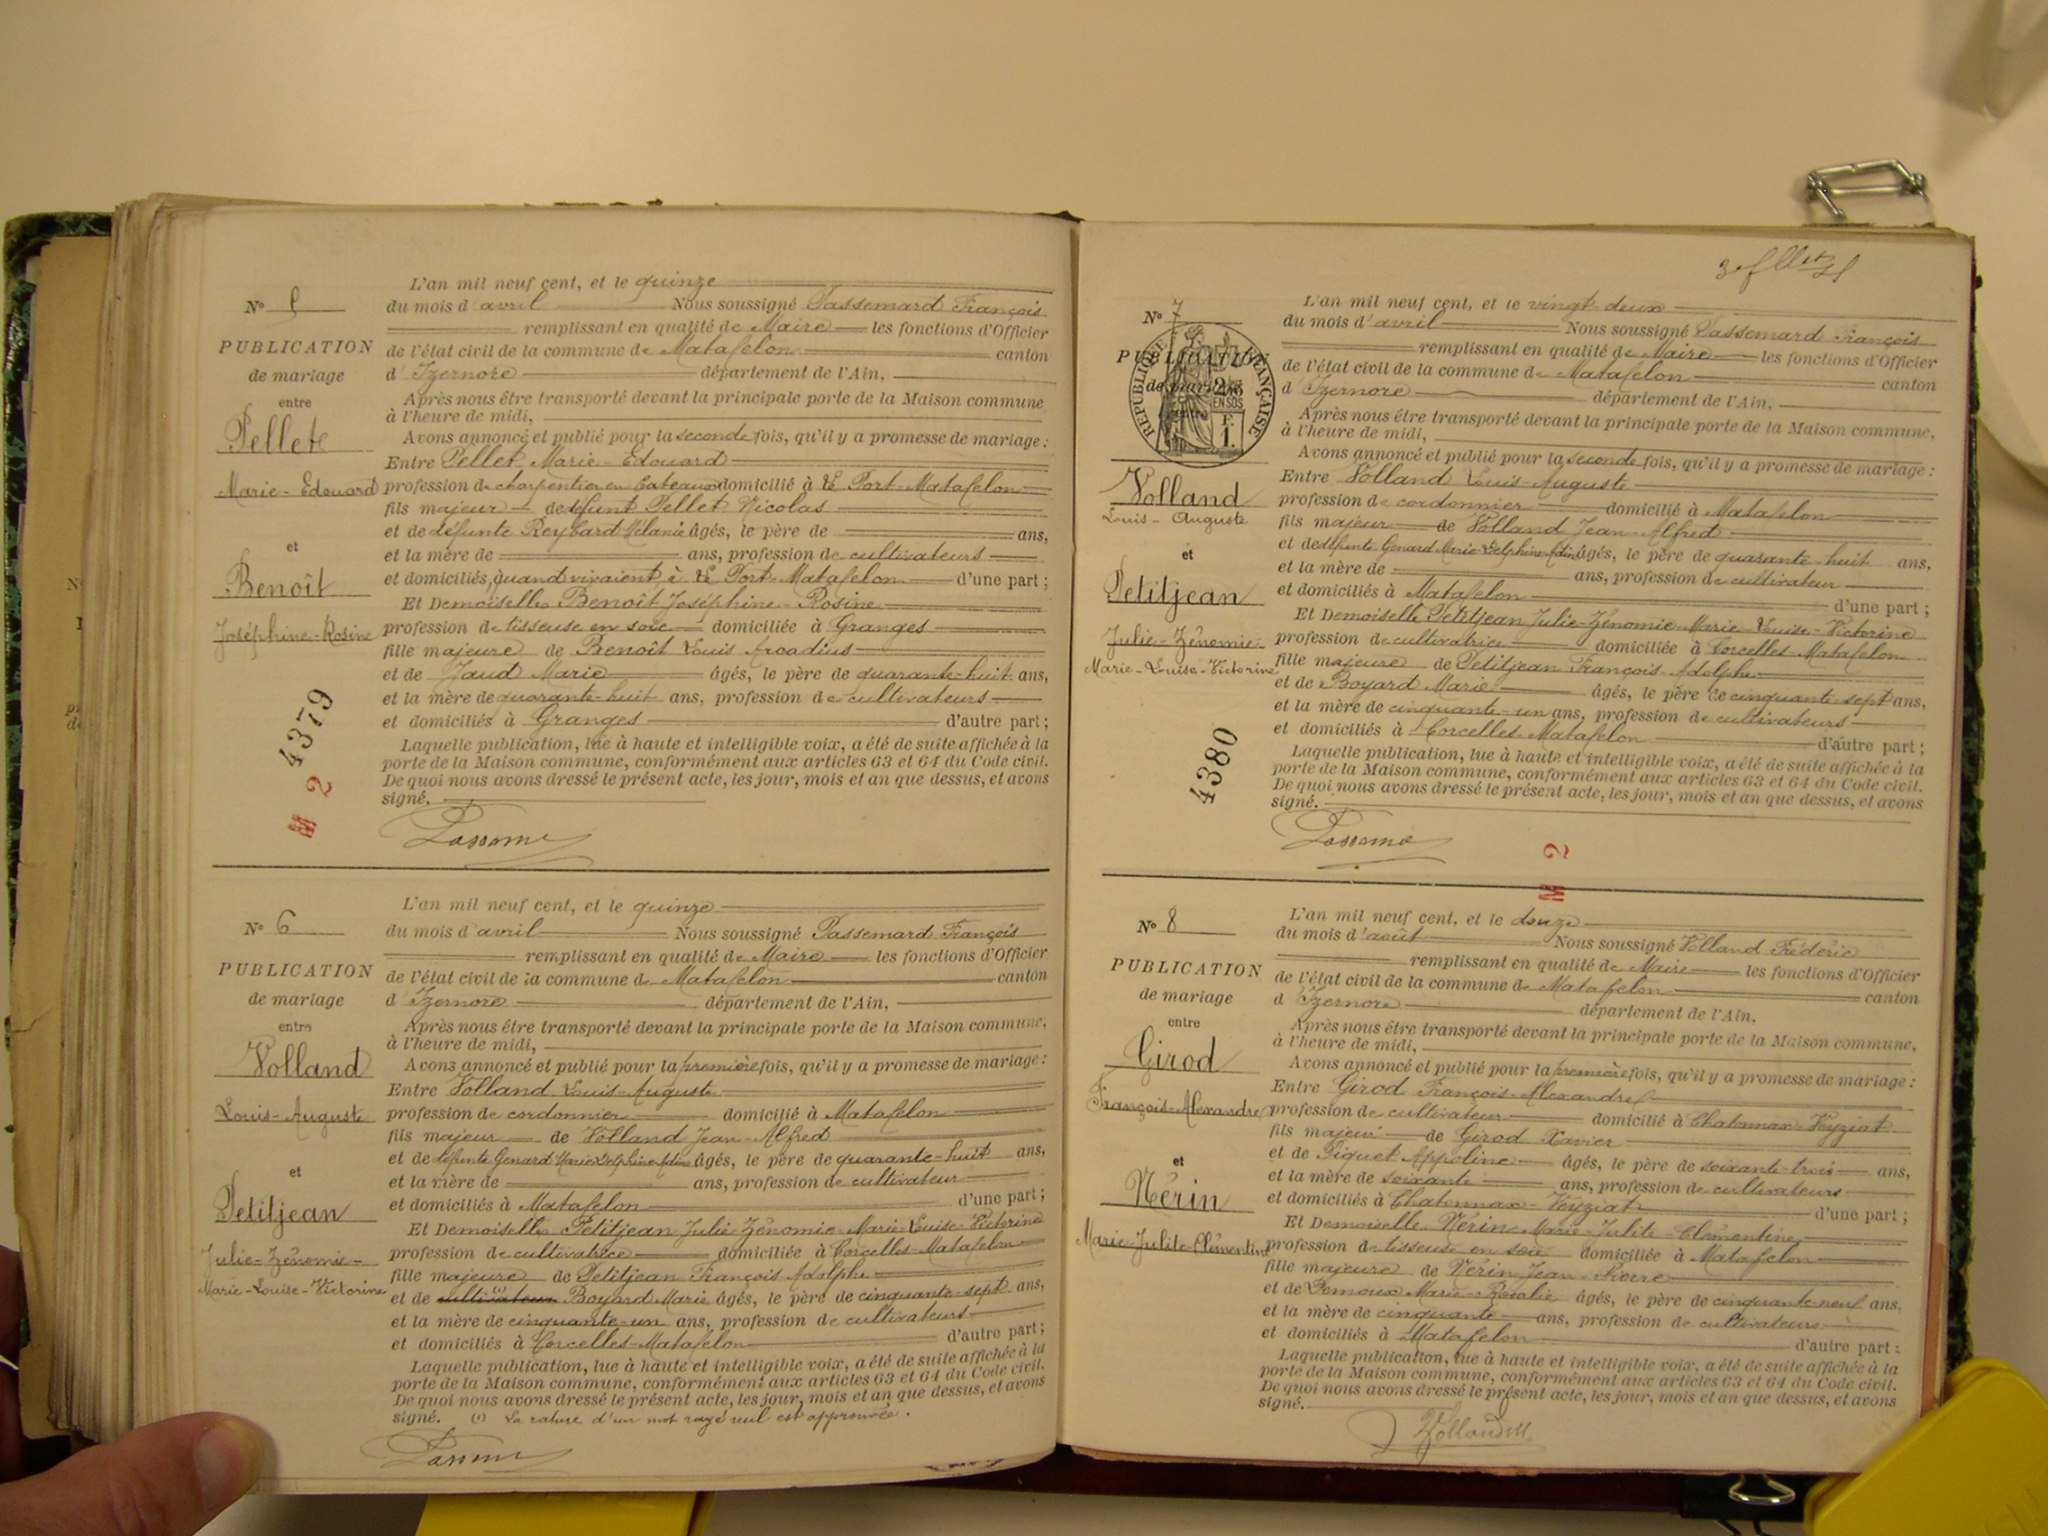 N° 5
PUBLICATION
de mariage
entre
Pellet
Marie-Edouard
et
Benoît
Joséphine-Rosine
4379
M 2
L'an mil neuf cent, et le quinze
du mois d'avril Nous soussigné Passemard François
remplissant en qualité de Maire les fonctions d'Officier
de l'état civil de la commune de Matafelon canton
d'Izernore département de l'Ain,
Après nous être transporté devant la principale porte de la Maison commune
à l'heure de midi,
Avons annoncé et publié pour la seconde fois, qu'il y a promesse de mariage :
Entre Pellet Marie-Edouard
profession de charpentier en bateaux domicilié à Le Port-Matafelon
fils majeur de défunt Pellet Nicolas
et de défunte Reybard Mélanie âgés, le père de ans,
et la mère de ans, profession de cultivateurs
et domiciliés, quand vivaient à Le Port-Matafelon d'une part ;
Et Demoiselle Benoît Joséphine-Rosine
profession de tisseuse en soie domiciliée à Granges
fille majeure de Benoît Louis Arcadius
et de Jaud Marie âgés, le père de quarante-huit ans,
et la mère de quarante-huit ans, profession de cultivateurs
et domiciliés à Granges d'autre part ;
Laquelle publication, lue à haute et intelligible voix, a été de suite affichée à la
porte de la Maison commune, conformément aux articles 63 et 64 du Code civil.
De quoi nous avons dressé le présent acte, les jour, mois et an que dessus, et avons
signé.
N° 6
PUBLICATION
de mariage
entre
Volland
Louis-Auguste
et
Petitjean
Julie-Zénomie-
Marie-Louise-Victorine
L'an mil neuf cent, et le quinze
du mois d'avril Nous soussigné Passemard François
remplissant en qualité de Maire les fonctions d'Officier
de l'état civil de la commune de Matafelon canton
d'Izernore département de l'Ain,
Après nous être transporté devant la principale porte de la Maison commune,
à l'heure de midi,
Avons annoncé et publié pour la première fois, qu'il y a promesse de mariage :
Entre Volland Louis-Auguste
profession de cordonnier domicilié à Matafelon
fils majeur de Volland Jean-Alfred
et de défunte Genard Marie Delphine âgés, le père de quarante-huit ans,
et la mère de ans, profession de cultivateur
et domiciliés à Matafelon d'une part ;
Et Demoiselle Petitjean Julie-Zénomie-Marie-Louise-Victorine
profession de cultivatrice domiciliée à Corcelles-Matafelon
fille majeure de Petitjean François-Adolphe
et de cultivateur (1) Boyard Marie âgés, le père de cinquante-sept ans,
et la mère de cinquante-un ans, profession de cultivateurs
et domiciliés à Corcelles-Matafelon d'autre part ;
Laquelle publication, lue à haute et intelligible voix, a été de suite affichée à la
porte de la Maison commune, conformément aux articles 63 et 64 du Code civil.
De quoi nous avons dressé le présent acte, les jour, mois et an que dessus, et avons
signé. (1) La rature d'un mot rayé nul est approuvée.
N° 7
PUBLICATION
de mariage
RÉPUBLIQUE FRANÇAISE
2/10 EN SUS
F.
1.
Volland
Louis-Auguste
et
Petitjean
Julie-Zénomie-
Marie-Louise-Victorine
4380
M 2
L'an mil neuf cent, et le vingt deux
du mois d'avril Nous soussigné Passemard François
remplissant en qualité de Maire les fonctions d'Officier
de l'état civil de la commune de Matafelon canton
d'Izernore département de l'Ain,
Après nous être transporté devant la principale porte de la Maison commune,
à l'heure de midi,
Avons annoncé et publié pour la seconde fois, qu'il y a promesse de mariage :
Entre Volland Louis-Auguste
profession de cordonnier domicilié à Matafelon
fils majeur de Volland Jean-Alfred
et de défunte Genard Marie Delphine âgés, le père de quarante-huit ans,
et la mère de ans, profession de cultivateur
et domiciliés à Matafelon d'une part ;
Et Demoiselle Petitjean Julie-Zénomie-Marie-Louise-Victorine
profession de cultivatrice domiciliée à Corcelles-Matafelon
fille majeure de Petitjean François-Adolphe
et de Boyard Marie âgés, le père de cinquante-sept ans,
et la mère de cinquante-un ans, profession de cultivateurs
et domiciliés à Corcelles-Matafelon d'autre part ;
Laquelle publication, lue à haute et intelligible voix, a été de suite affichée à la
porte de la Maison commune, conformément aux articles 63 et 64 du Code civil.
De quoi nous avons dressé le présent acte, les jour, mois et an que dessus, et avons
signé.
N° 8
PUBLICATION
de mariage
entre
Girod
François-Alexandre
et
Nérin
Marie-Julite-Clémentine
L'an mil neuf cent, et le douze
du mois d'août Nous soussigné Volland Fréderic
remplissant en qualité de Maire les fonctions d'Officier
de l'état civil de la commune de Matafelon canton
d'Izernore département de l'Ain,
Après nous être transporté devant la principale porte de la Maison commune,
à l'heure de midi,
Avons annoncé et publié pour la première fois, qu'il y a promesse de mariage :
Entre Girod François-Alexandre
profession de cultivateur domicilié à Chatonnax-Veyziat
fils majeur de Girod Xavier
et de Piquet Appoline âgés, le père de soixante-trois ans,
et la mère de soixante ans, profession de cultivateurs
et domiciliés à Chatonnax-Veyziat d'une part ;
Et Demoiselle Nérin Marie-Julite-Clémentine
profession de tisseuse en soie domiciliée à Matafelon
fille majeure de Nérin Jean-Pierre
et de Marie-Rosalie âgés, le père de cinquante-neuf ans,
et la mère de cinquante ans, profession de cultivateurs
et domiciliés à Matafelon d'autre part :
Laquelle publication, lue à haute et intelligible voix, a été de suite affichée à la
porte de la Maison commune, conformément aux articles 63 et 64 du Code civil.
De quoi nous avons dressé le présent acte, les jour, mois et an que dessus, et avons
signé.